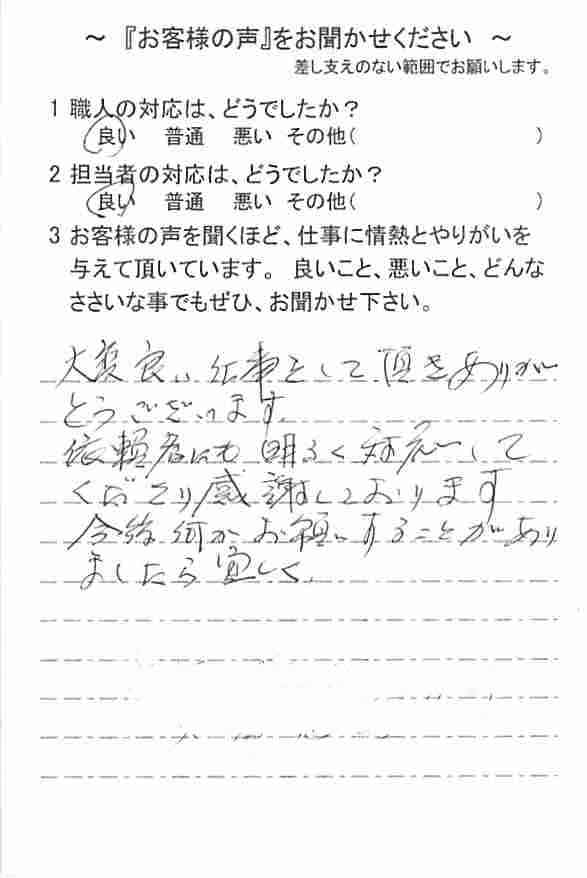 ～ 『お客様の声』をお聞かせください ～
差し支えのない範囲でお願いします。
1 職人の対応は、どうでしたか？
良い 普通 悪い その他( )
2 担当者の対応は、どうでしたか？
良い 普通 悪い その他( )
3 お客様の声を聞くほど、仕事に情熱とやりがいを
与えて頂いています。 良いこと、悪いこと、どんな
ささいな事でもぜひ、お聞かせ下さい。
大変良い仕事をして頂きありが
とうございます。
依頼者にも明るく対応して
くださり感謝しております
今後何かお願いすることがあり
ましたら宜しく。